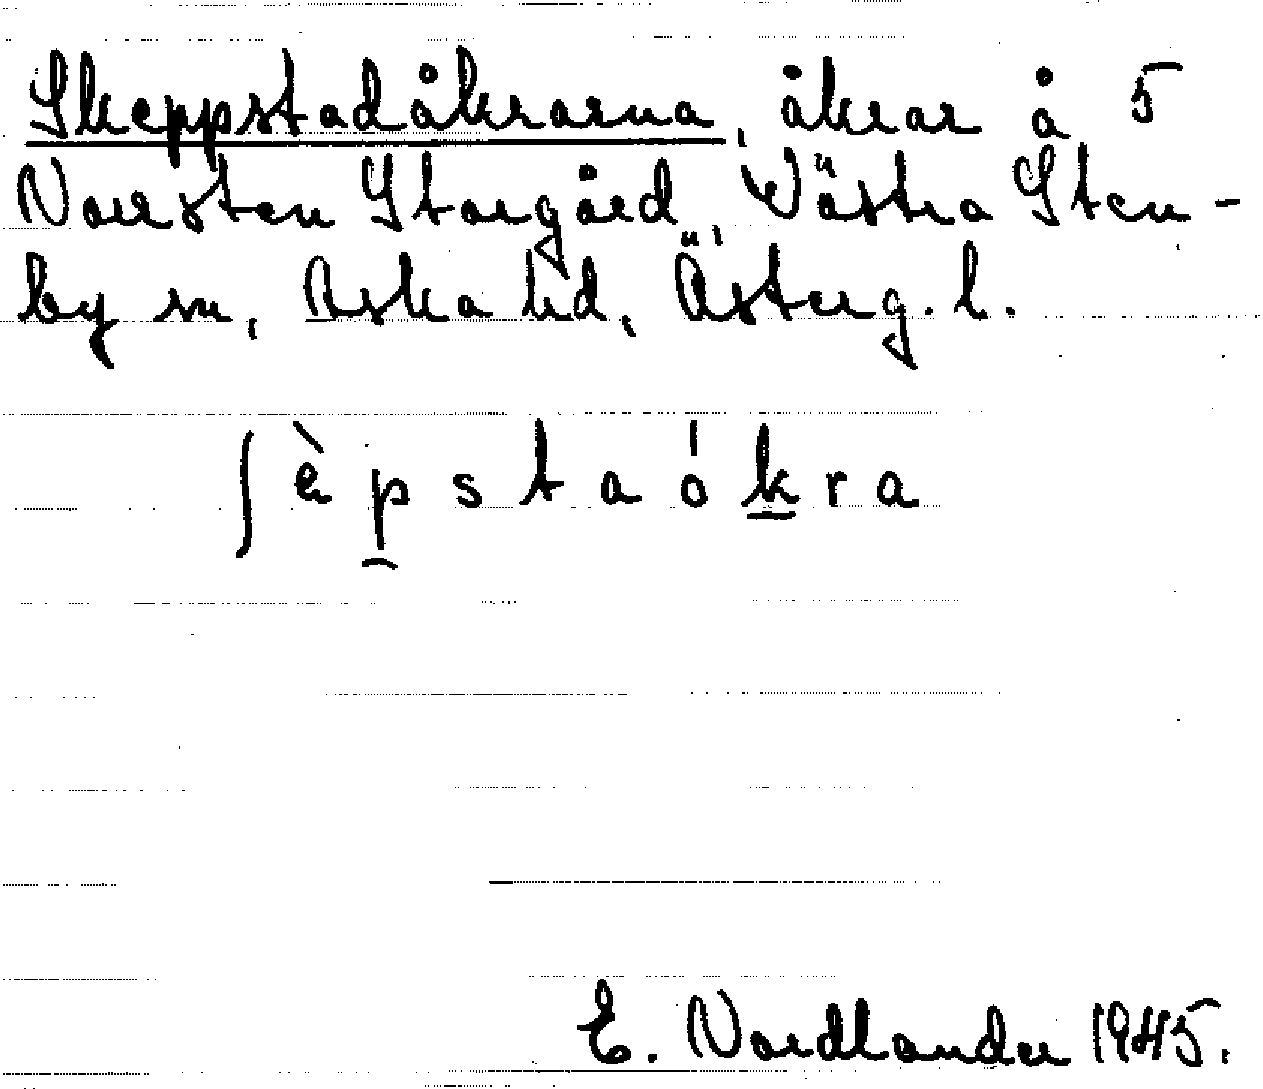 Skeppstadåkrarna, åkrar å 5
Norrsten Storgård, Västra Sten-
by sn, Aska hd, Österg. l.
ʃèpstaókra
E. Nordlander 1945.